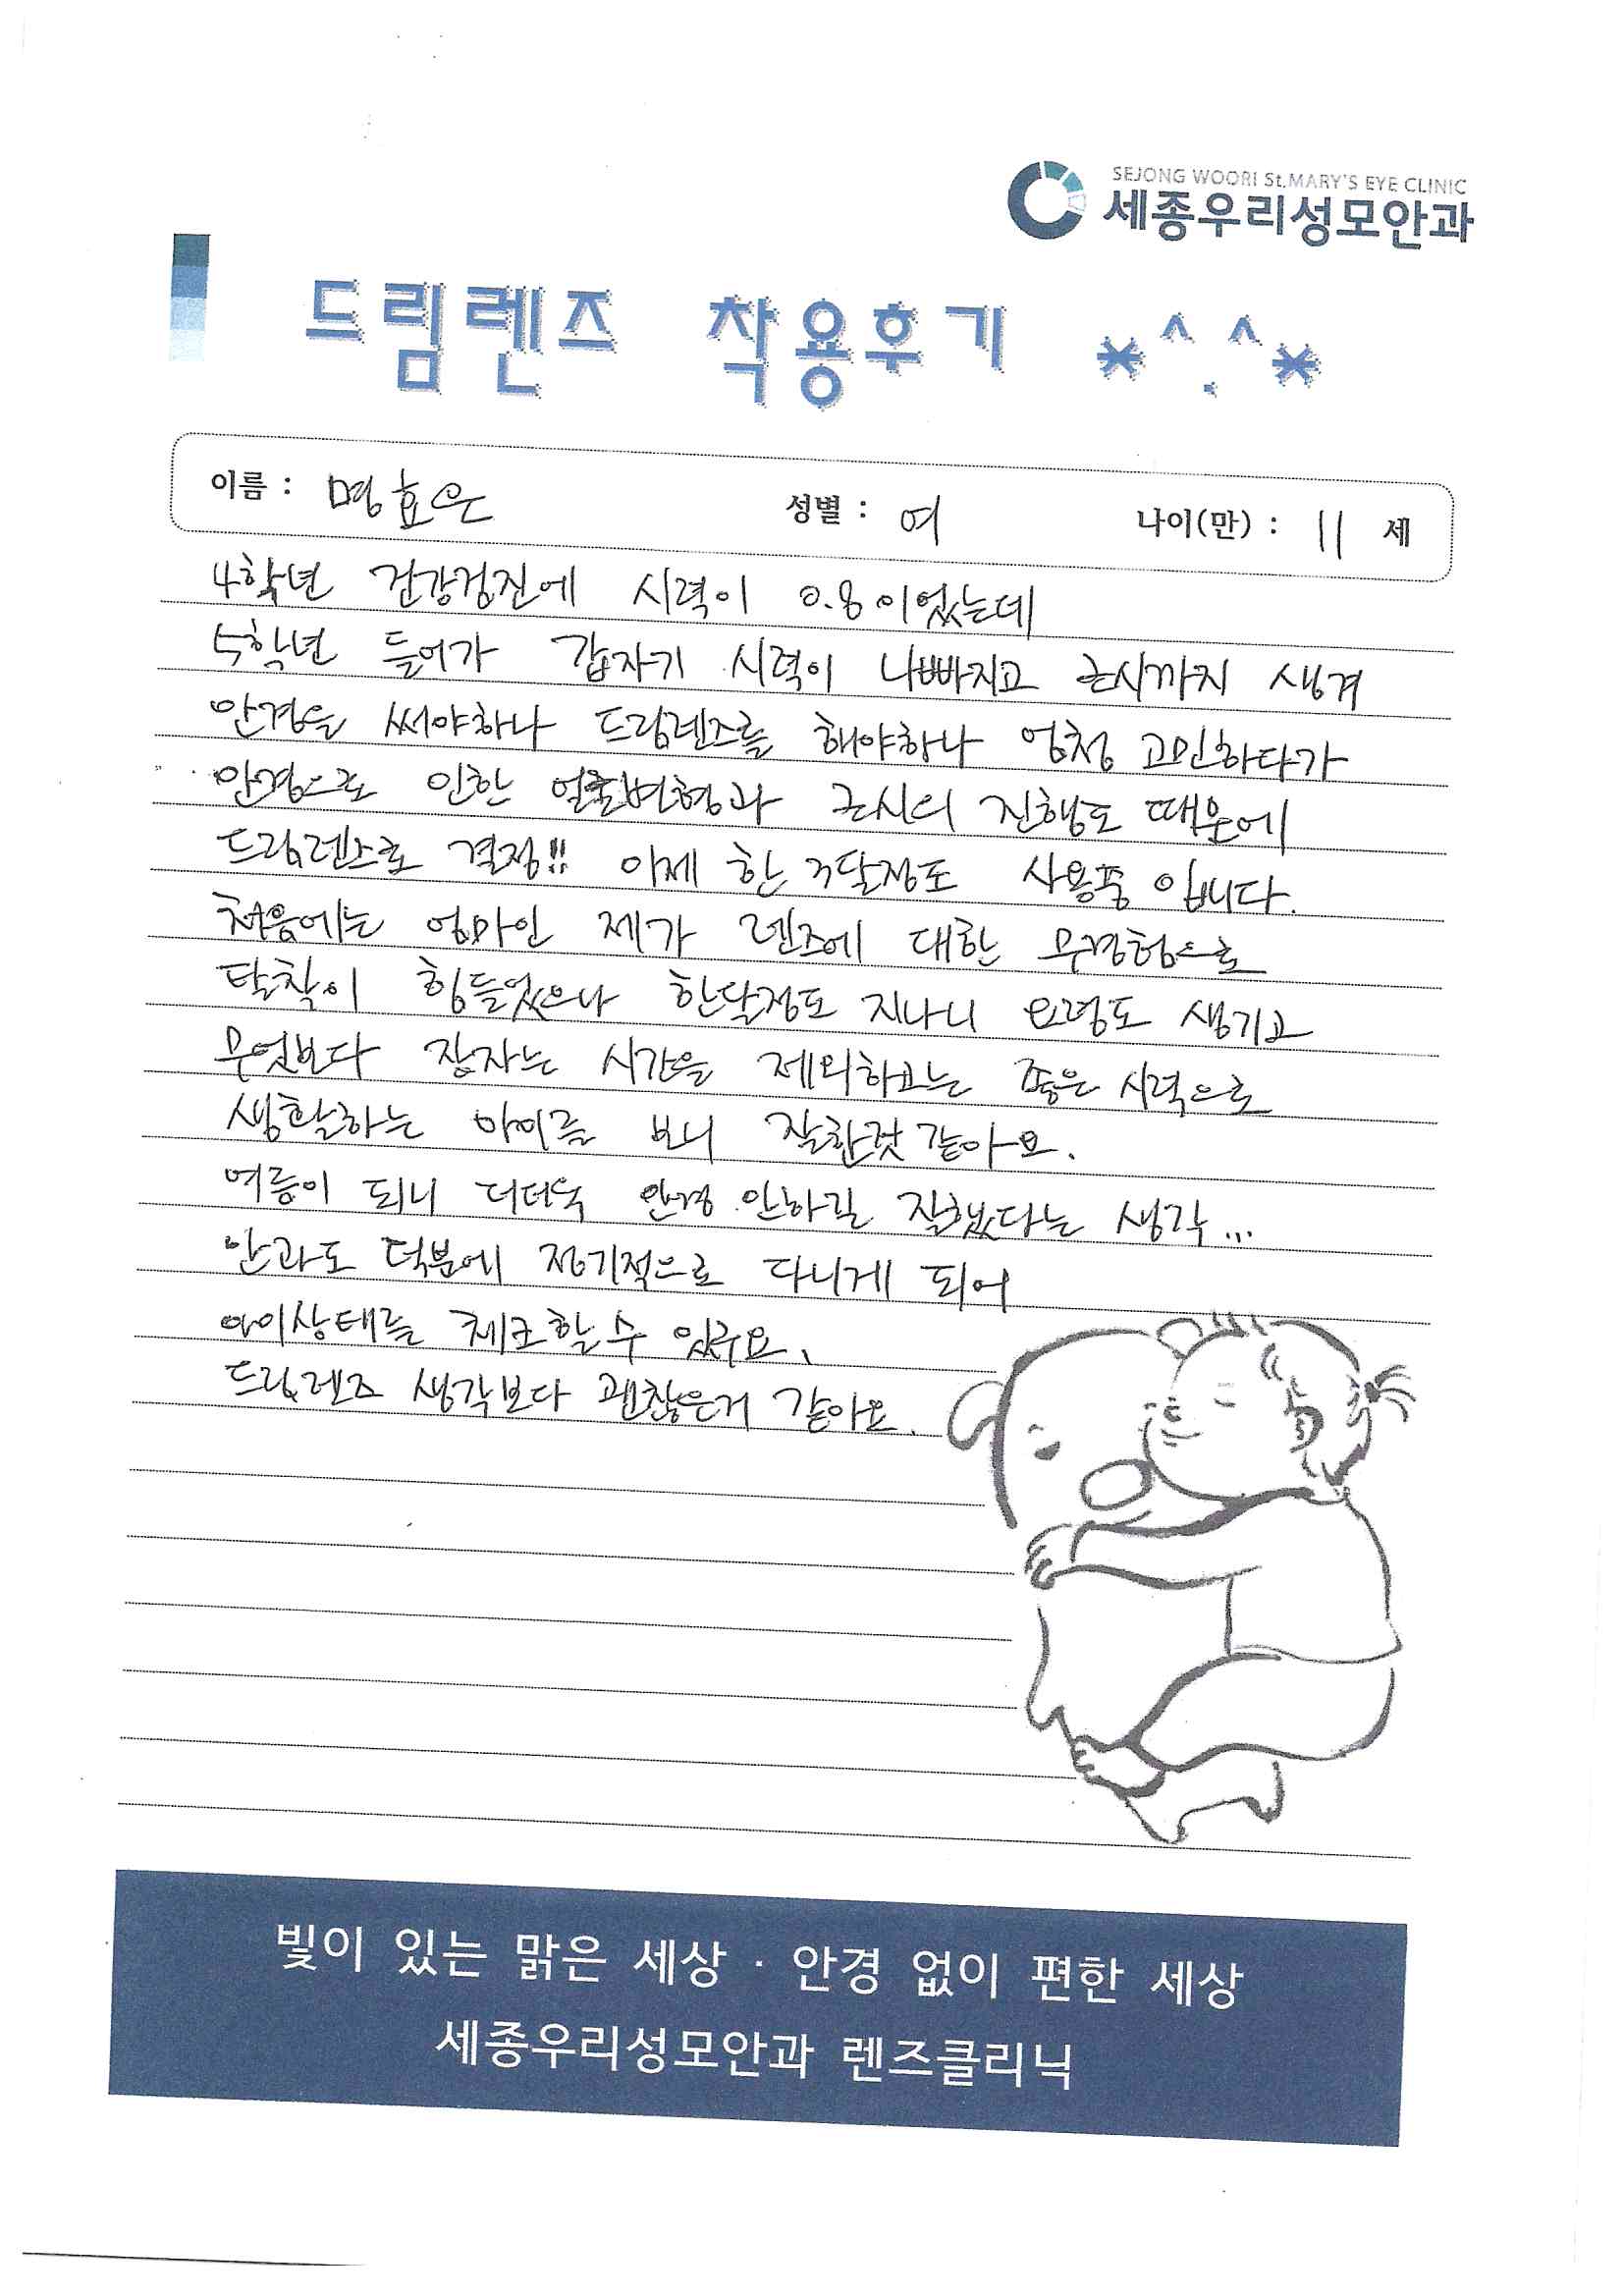 SEJONG WOORI St.MARY'S EYE CLINIC
세종우리성모안과
드림렌즈 착용후기 *^.^*
이름 : 명효은 성별 : 여 나이(만) : 11 세
4학년 건강검진에 시력이 0.8이었는데
5학년 들어가 갑자기 시력이 나빠지고 근시까지 생겨
안경을 써야하나 드림렌즈를 해야하나 엄청 고민하다가
안경으로 인한 얼굴변형과 근시의 진행도 때문에
드림렌즈로 결정!! 이제 한 3달정도 사용중 입니다.
처음에는 엄마인 제가 렌즈에 대한 무경험으로
탈착이 힘들었으나 한달정도 지나니 요령도 생기고
무엇보다 잠자는 시간을 제외하고는 좋은 시력으로
생활하는 아이를 보니 잘한것 같아요.
여름이 되니 더더욱 안경 안하길 잘했다는 생각...
안과도 덕분에 정기적으로 다니게 되어
아이상태를 체크할 수 있구요.
드림렌즈 생각보다 괜찮은거 같아요.
빛이 있는 맑은 세상 · 안경 없이 편한 세상
세종우리성모안과 렌즈클리닉